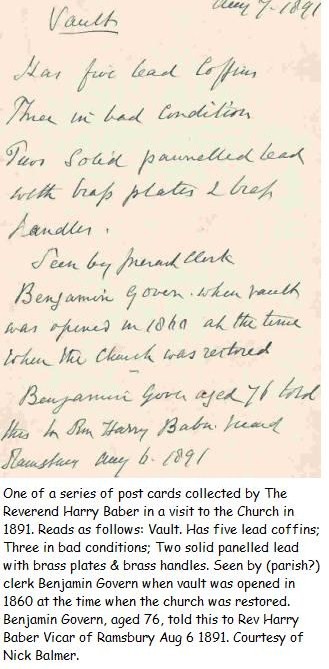 Aug 7. 1891
Vault
Has five lead Coffins
Three in bad Condition
Two Solid pannelled lead
with brass plates & brass
handles.
Seen by Clerk
Benjamin Govern. when vault
was opened in 1860 at the time
when the Church was restored
Benjamin Gover aged 76 told
this to Harry Baber
Ramsbury Aug 6. 1891
One of a series of post cards collected by The
Reverend Harry Baber in a visit to the Church in
1891. Reads as follows: Vault. Has five lead coffins;
Three in bad conditions; Two solid panelled lead
with brass plates & brass handles. Seen by (parish?)
clerk Benjamin Govern when vault was opened in
1860 at the time when the church was restored.
Benjamin Govern, aged 76, told this to Rev Harry
Baber Vicar of Ramsbury Aug 6 1891. Courtesy of
Nick Balmer.